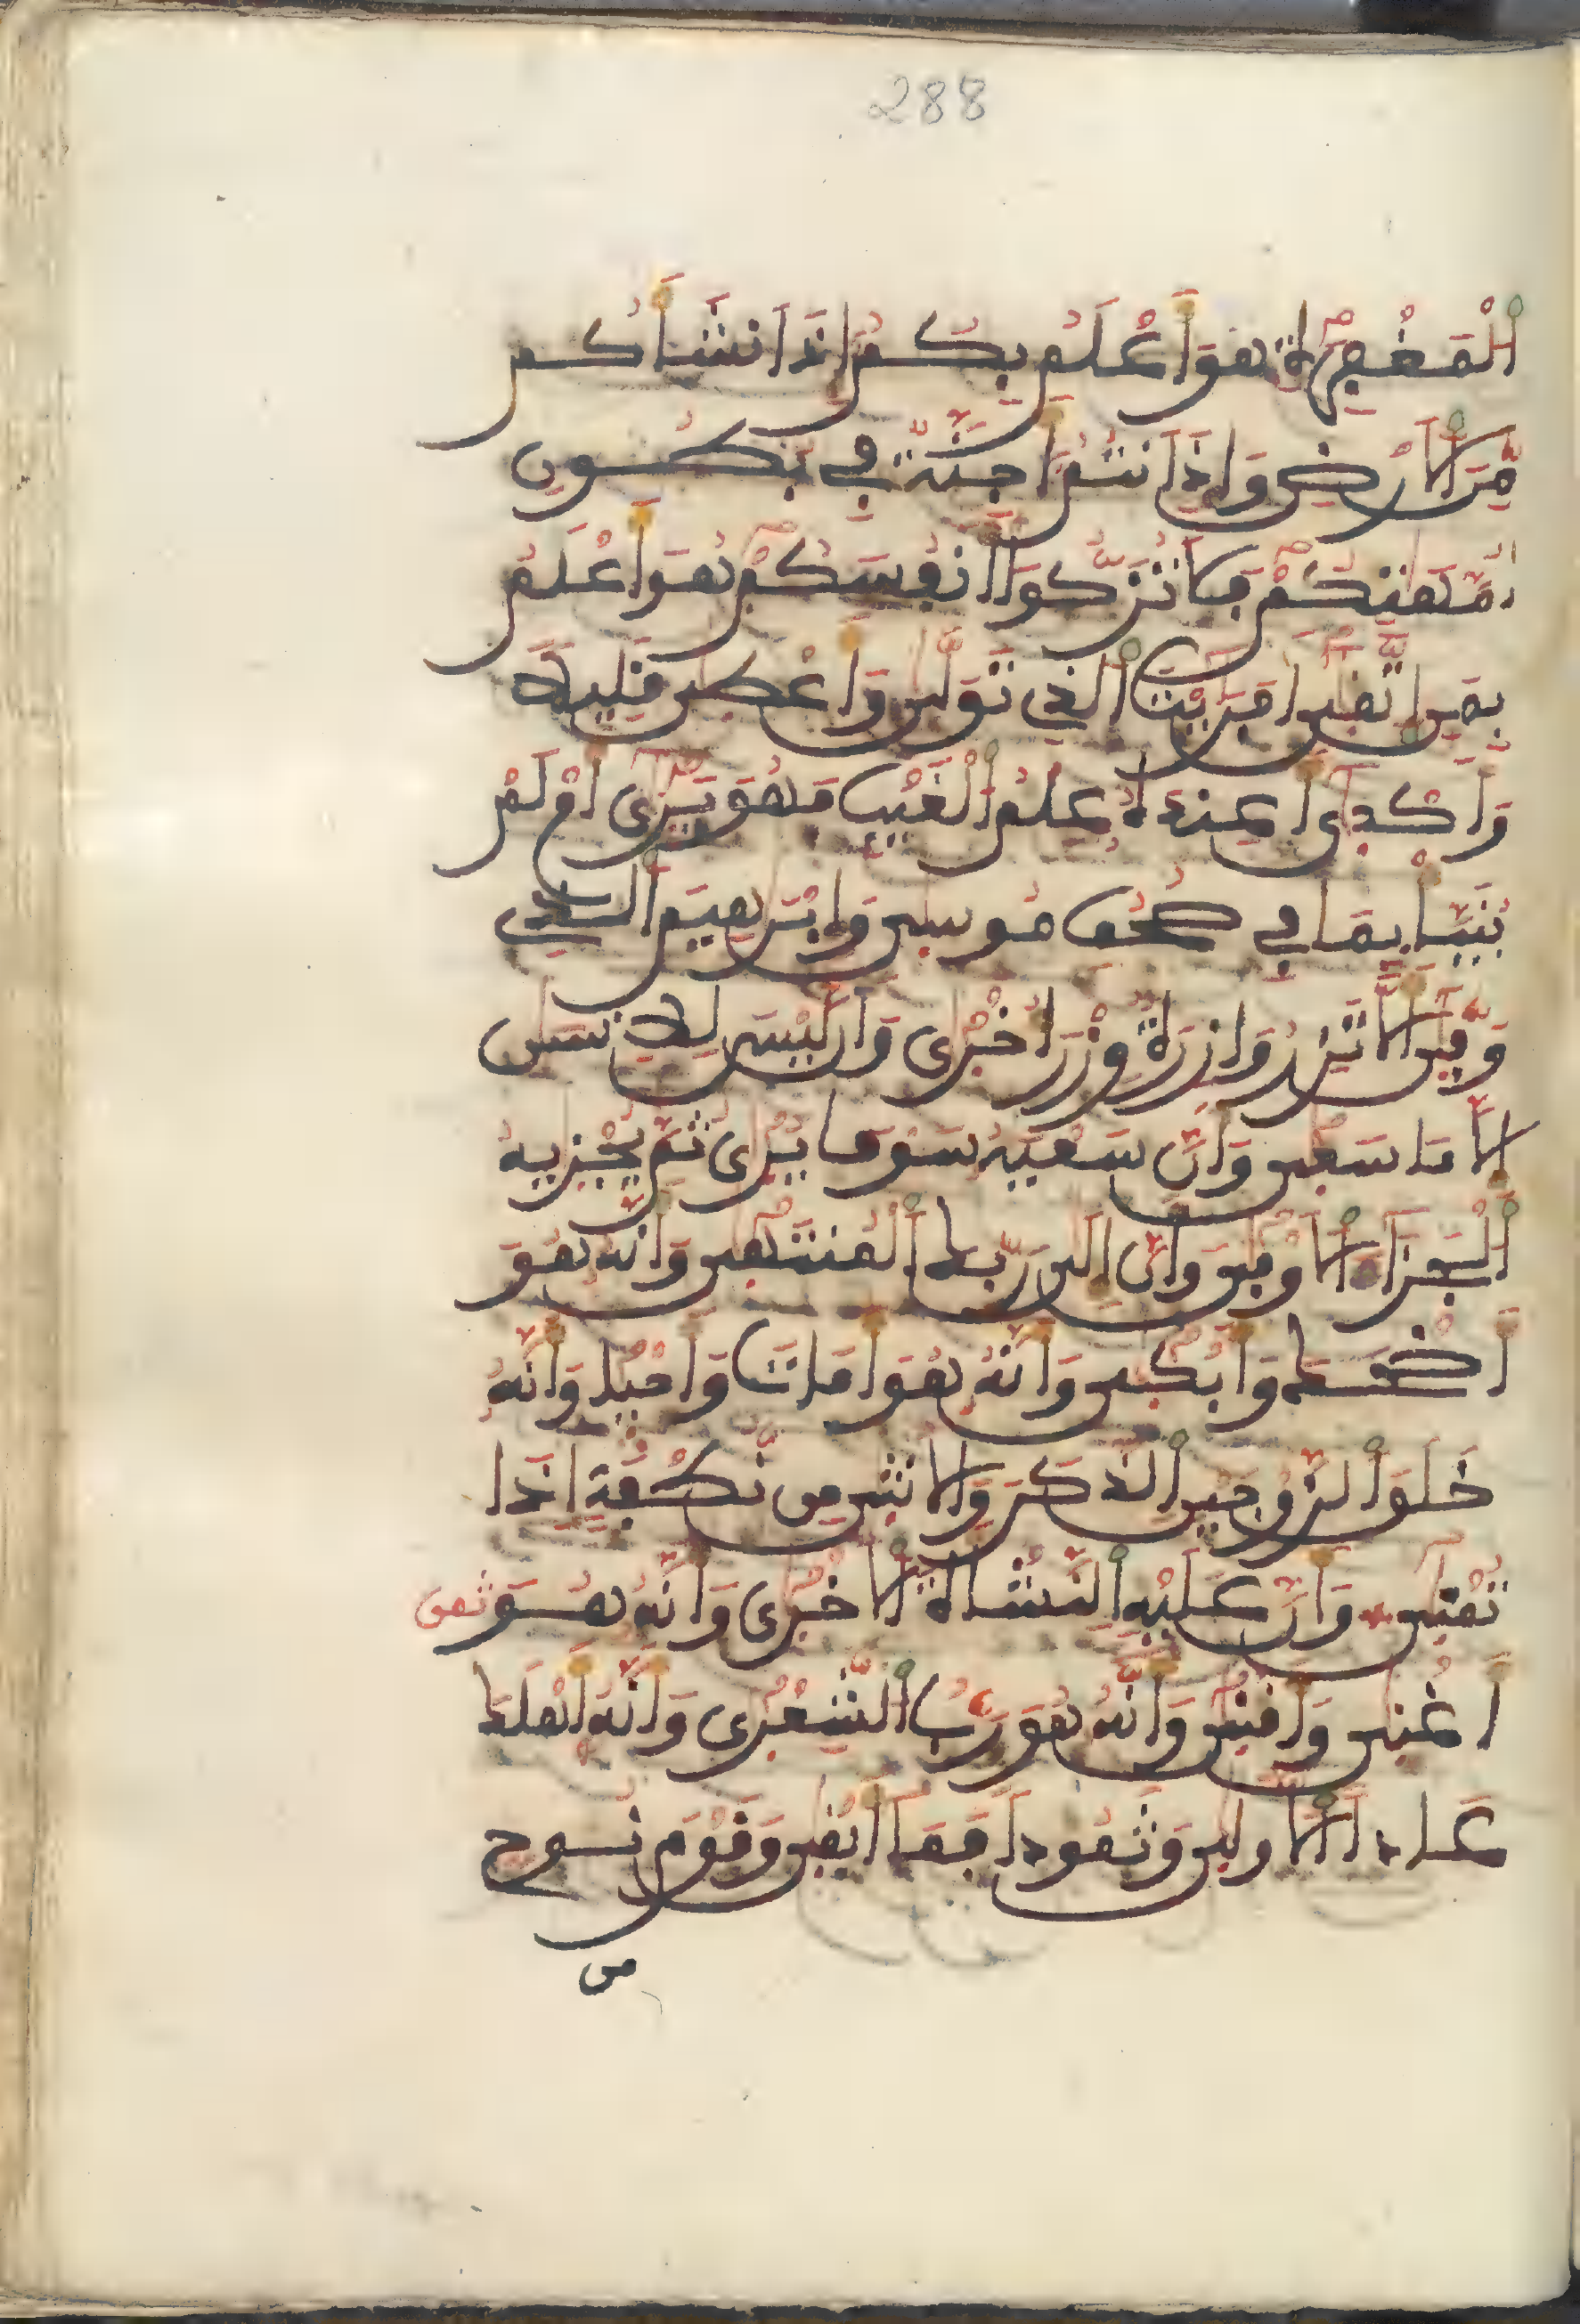 288
الْمَغْفِرَةِ هُوَ أَعْلَمُ بِكُمْ إِذَ انشَأَكُم
مِّنَ الَارْضِ وَإِذَ انتُمُ أَجِنَّةٌ فِي بُطُونِ
أُمَّهَتِكُمْ فَلَا تُزَكُّوا أَنفُسَكُمْ هُوَ أَعْلَمُ
بِمَنِ اتَّقَى أَفَرَيْتَ الَّذِي تَوَلَّى وَأَعْطَى قَلِيلًا
وَأَكْدَى أَعِندَهُ عِلْمُ الْغَيْبِ فَهُوَ يَرَى أَمْ لَمْ
يُنَبَّأْ بِمَا فِي صُحُفِ مُوسَى وَإِبْرَهِيمَ الَّذِي
وَفَّى أَلَّا تَزِرُ وَازِرَةٌ وِزْرَ أُخْرَى وَأَن لَّيْسَ لِلِانسَنِ
إِلَّا مَا سَعَى وَأَنَّ سَعْيَهُ سَوْفَ يُرَى ثُمَّ يُجْزَيهُ
الْجَزَاءَ الَاوْفَى وَأَنَّ إِلَى رَبِّكَ الْمُنتَهَى وَأَنَّهُ هُوَ
أَضْحَكَ وَأَبْكَى وَأَنَّهُ هُوَ أَمَاتَ وَأَحْيَا وَأَنَّهُ
خَلَقَ الزَّوْجَيْنِ الذَّكَرَ وَالُانثَى مِن نُّطْفَةٍ إِذَا
تُمْنَى وَأَنَّ عَلَيْهِ النَّشْأَةَ الُاخْرَى وَأَنَّهُ هُوَ ثمن
أَغْنَى وَأَقْنَى وَأَنَّهُ هُوَ رَبُّ الشِّعْرَى وَأَنَّهُ أَهْلَكَ
عَادًا الُاولَى وَثَمُودًا فَمَا أَبْقَى وَقَوْمَ نُوحٍ
من